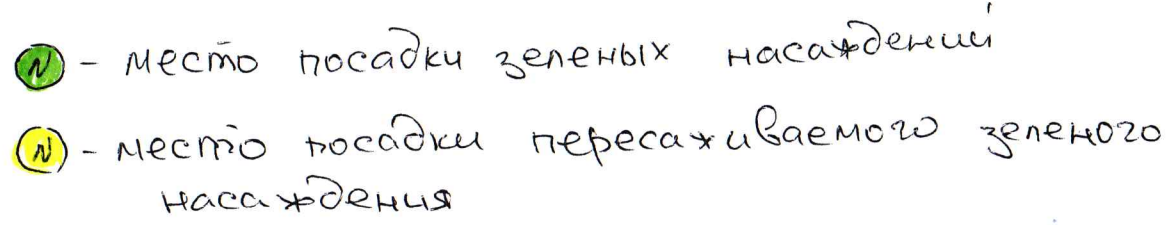 N - место посадки зеленых насаждений
N - место посадки пересаживаемого зеленого
насаждения